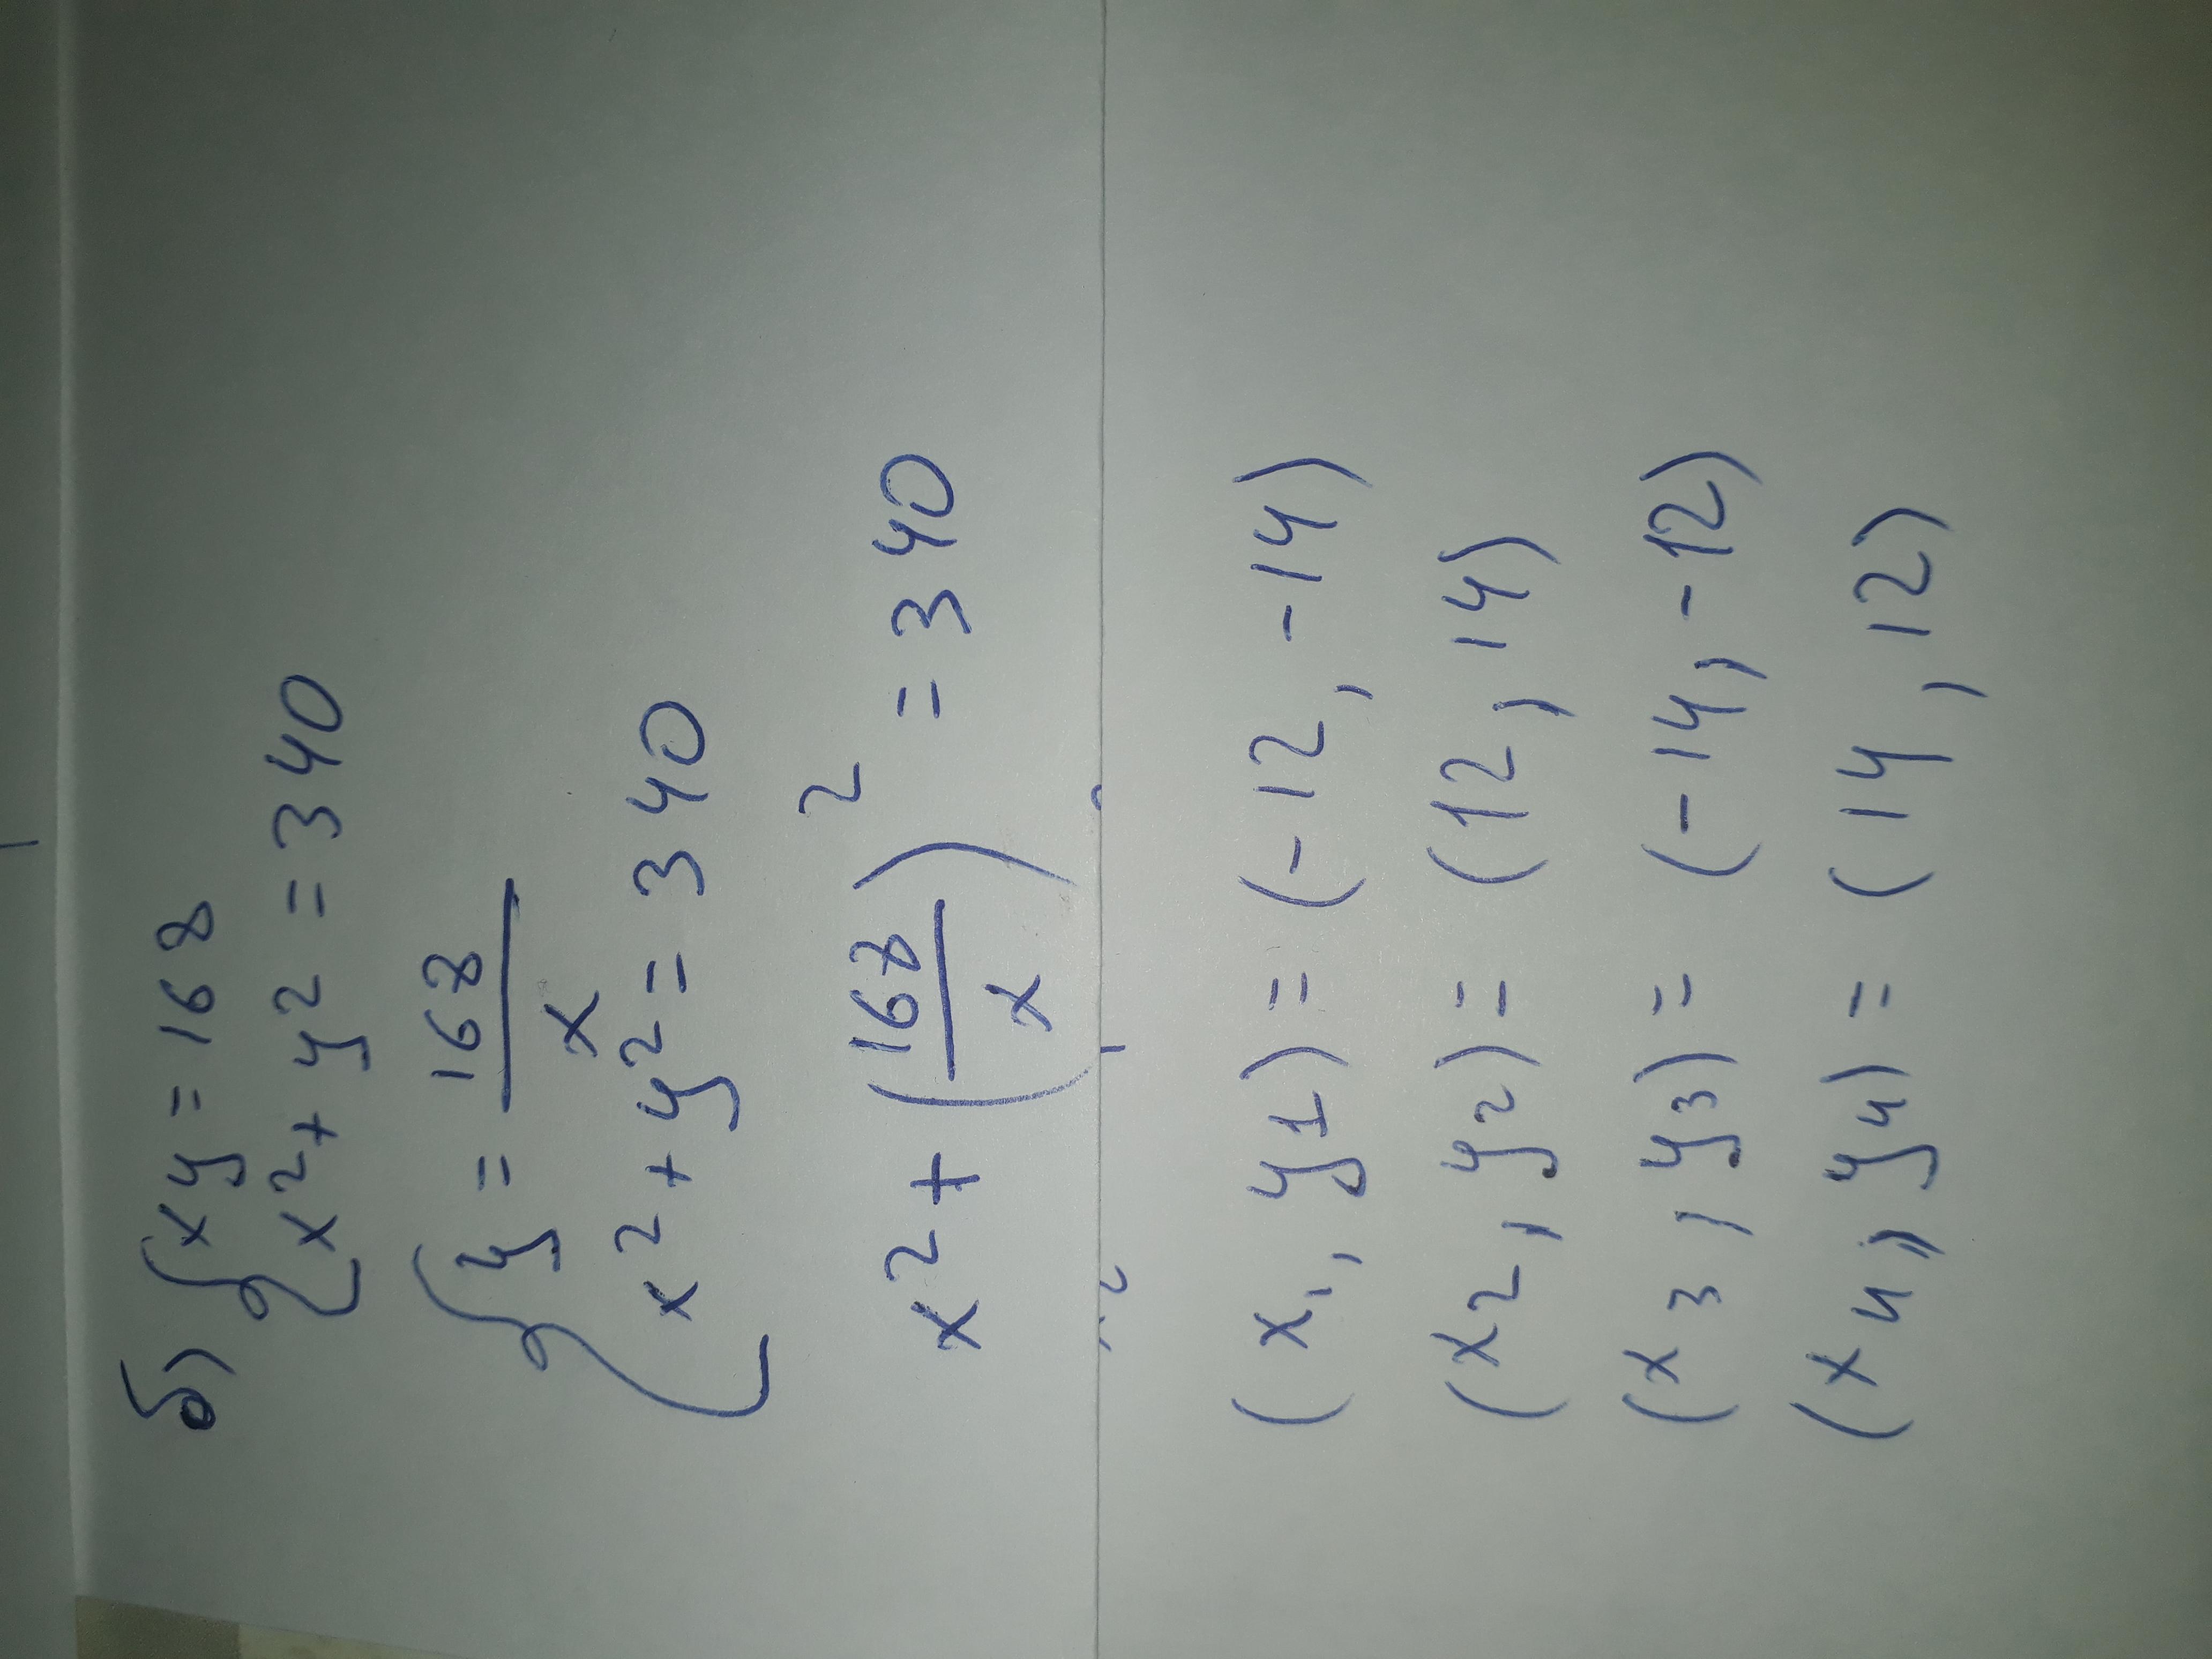 б) { xy = 168
x² + y² = 340
{ y = 168/x
x² + y² = 340
x² + (168/x)² = 340
(x₁, y₁) = (-12, -14)
(x₂, y₂) = (12, 14)
(x₃, y₃) = (-14, -12)
(x₄, y₄) = (14, 12)